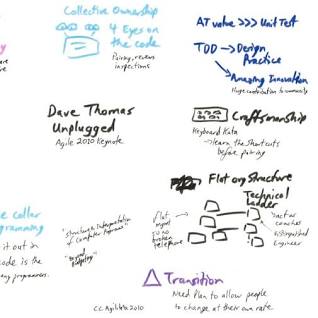 Collective Ownership
4 Eyes on
the code
Pairing, reviews
inspections
AT value >>> Unit Test
TDD → Design
Practice
Amazing Innovation
Huge contribution to community
Dave Thomas
Unplugged
Agile 2010 Keynote
Craftsmanship
Keyboard Kata
→ learn the shortcuts
before pairing
Flat org structure
Technical
Ladder
Flat
mgmt
so no
broken
telephone
coaches
Distinguished
Engineer
collar
it out in
code is the
programmers.
of Computer Programs"
Transition
Need Plan to allow people
to change at their own rate
CC Agilitrix 2010